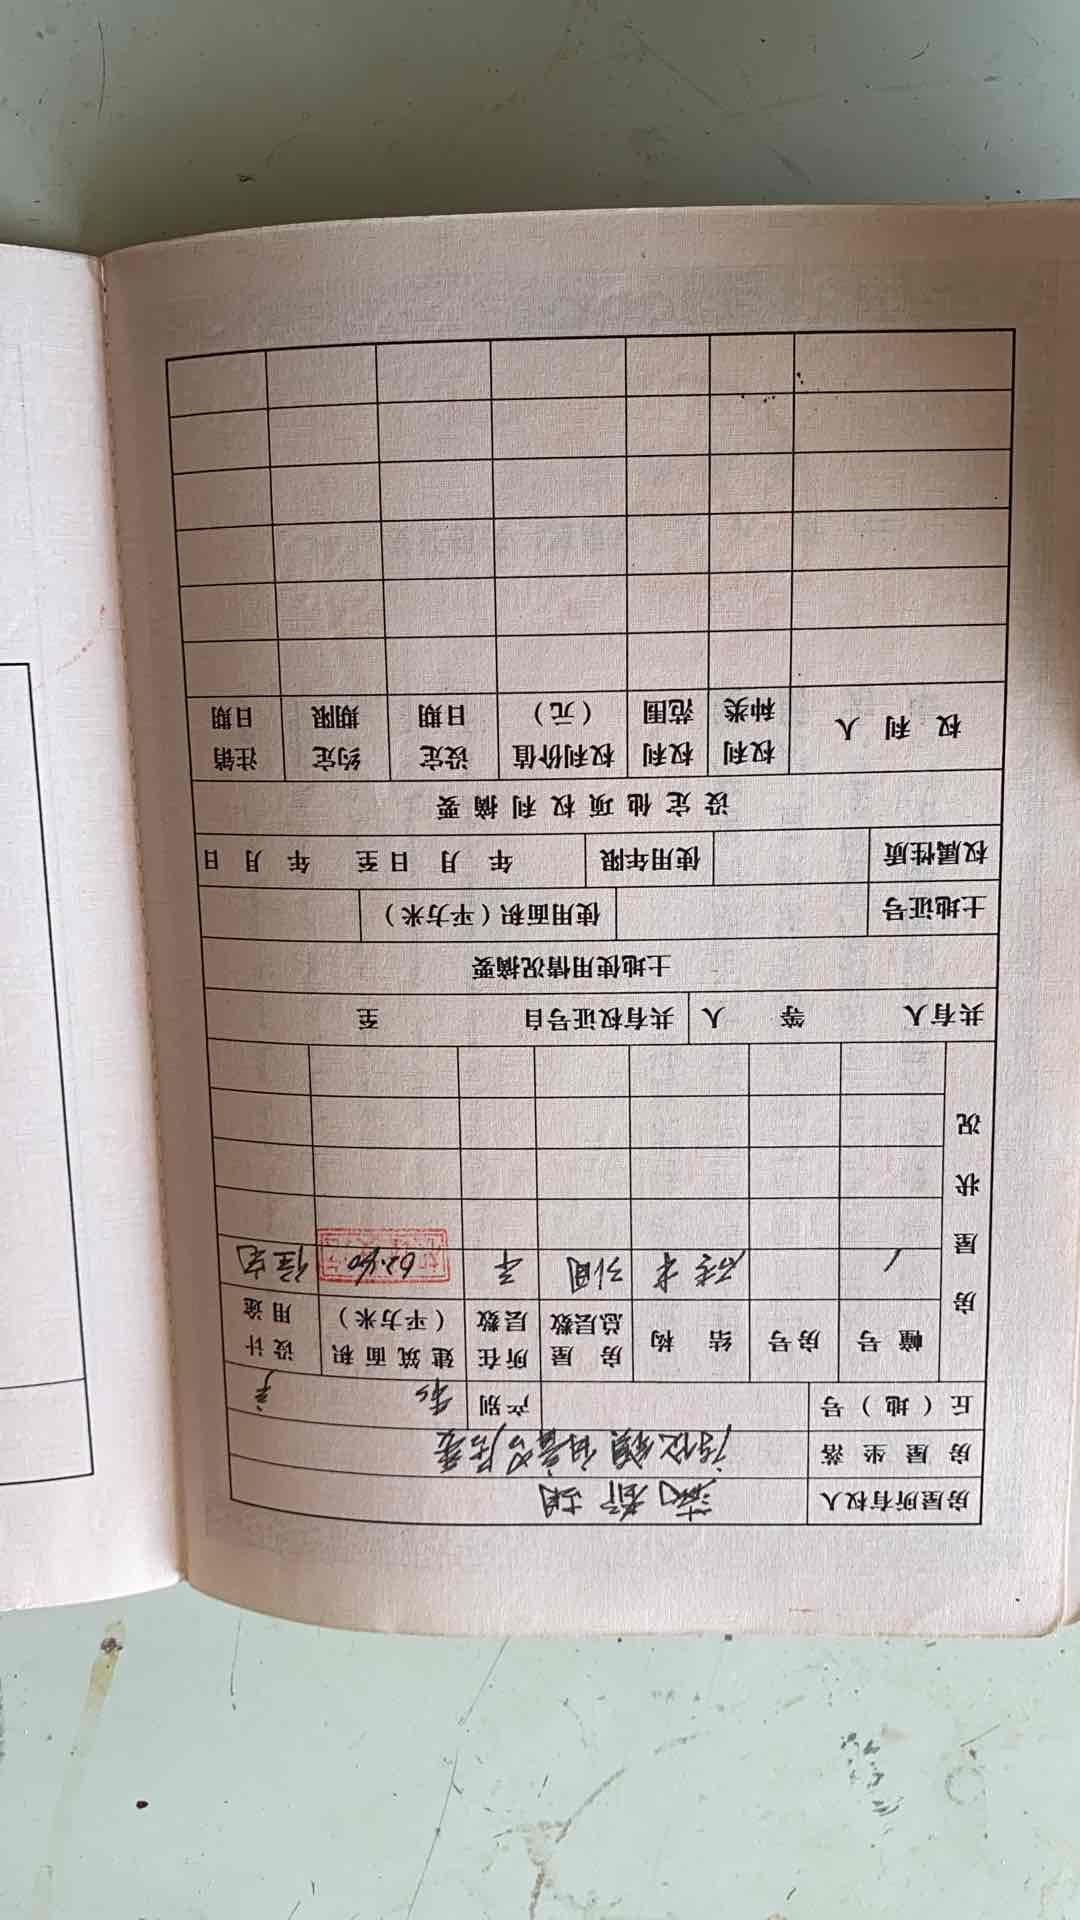 房屋所有权人
房屋坐落
丘(地)号 产别 私
房屋状况 幢号 房号 结构 房屋总层数 所在层数 建筑面积(平方米) 设计用途
1 砖木 平 62.40 住宅
共有人 等 人 共有权证号自 至
土地使用情况摘要
土地证号 使用面积(平方米)
权属性质 使用年限 年 月 日至 年 月 日
设定他项权利摘要
权利人 权利种类 权利范围 权利价值(元) 设定日期 约定期限 注销日期